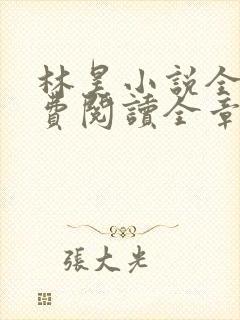 林昊小説全
費閱讀全章
張大光